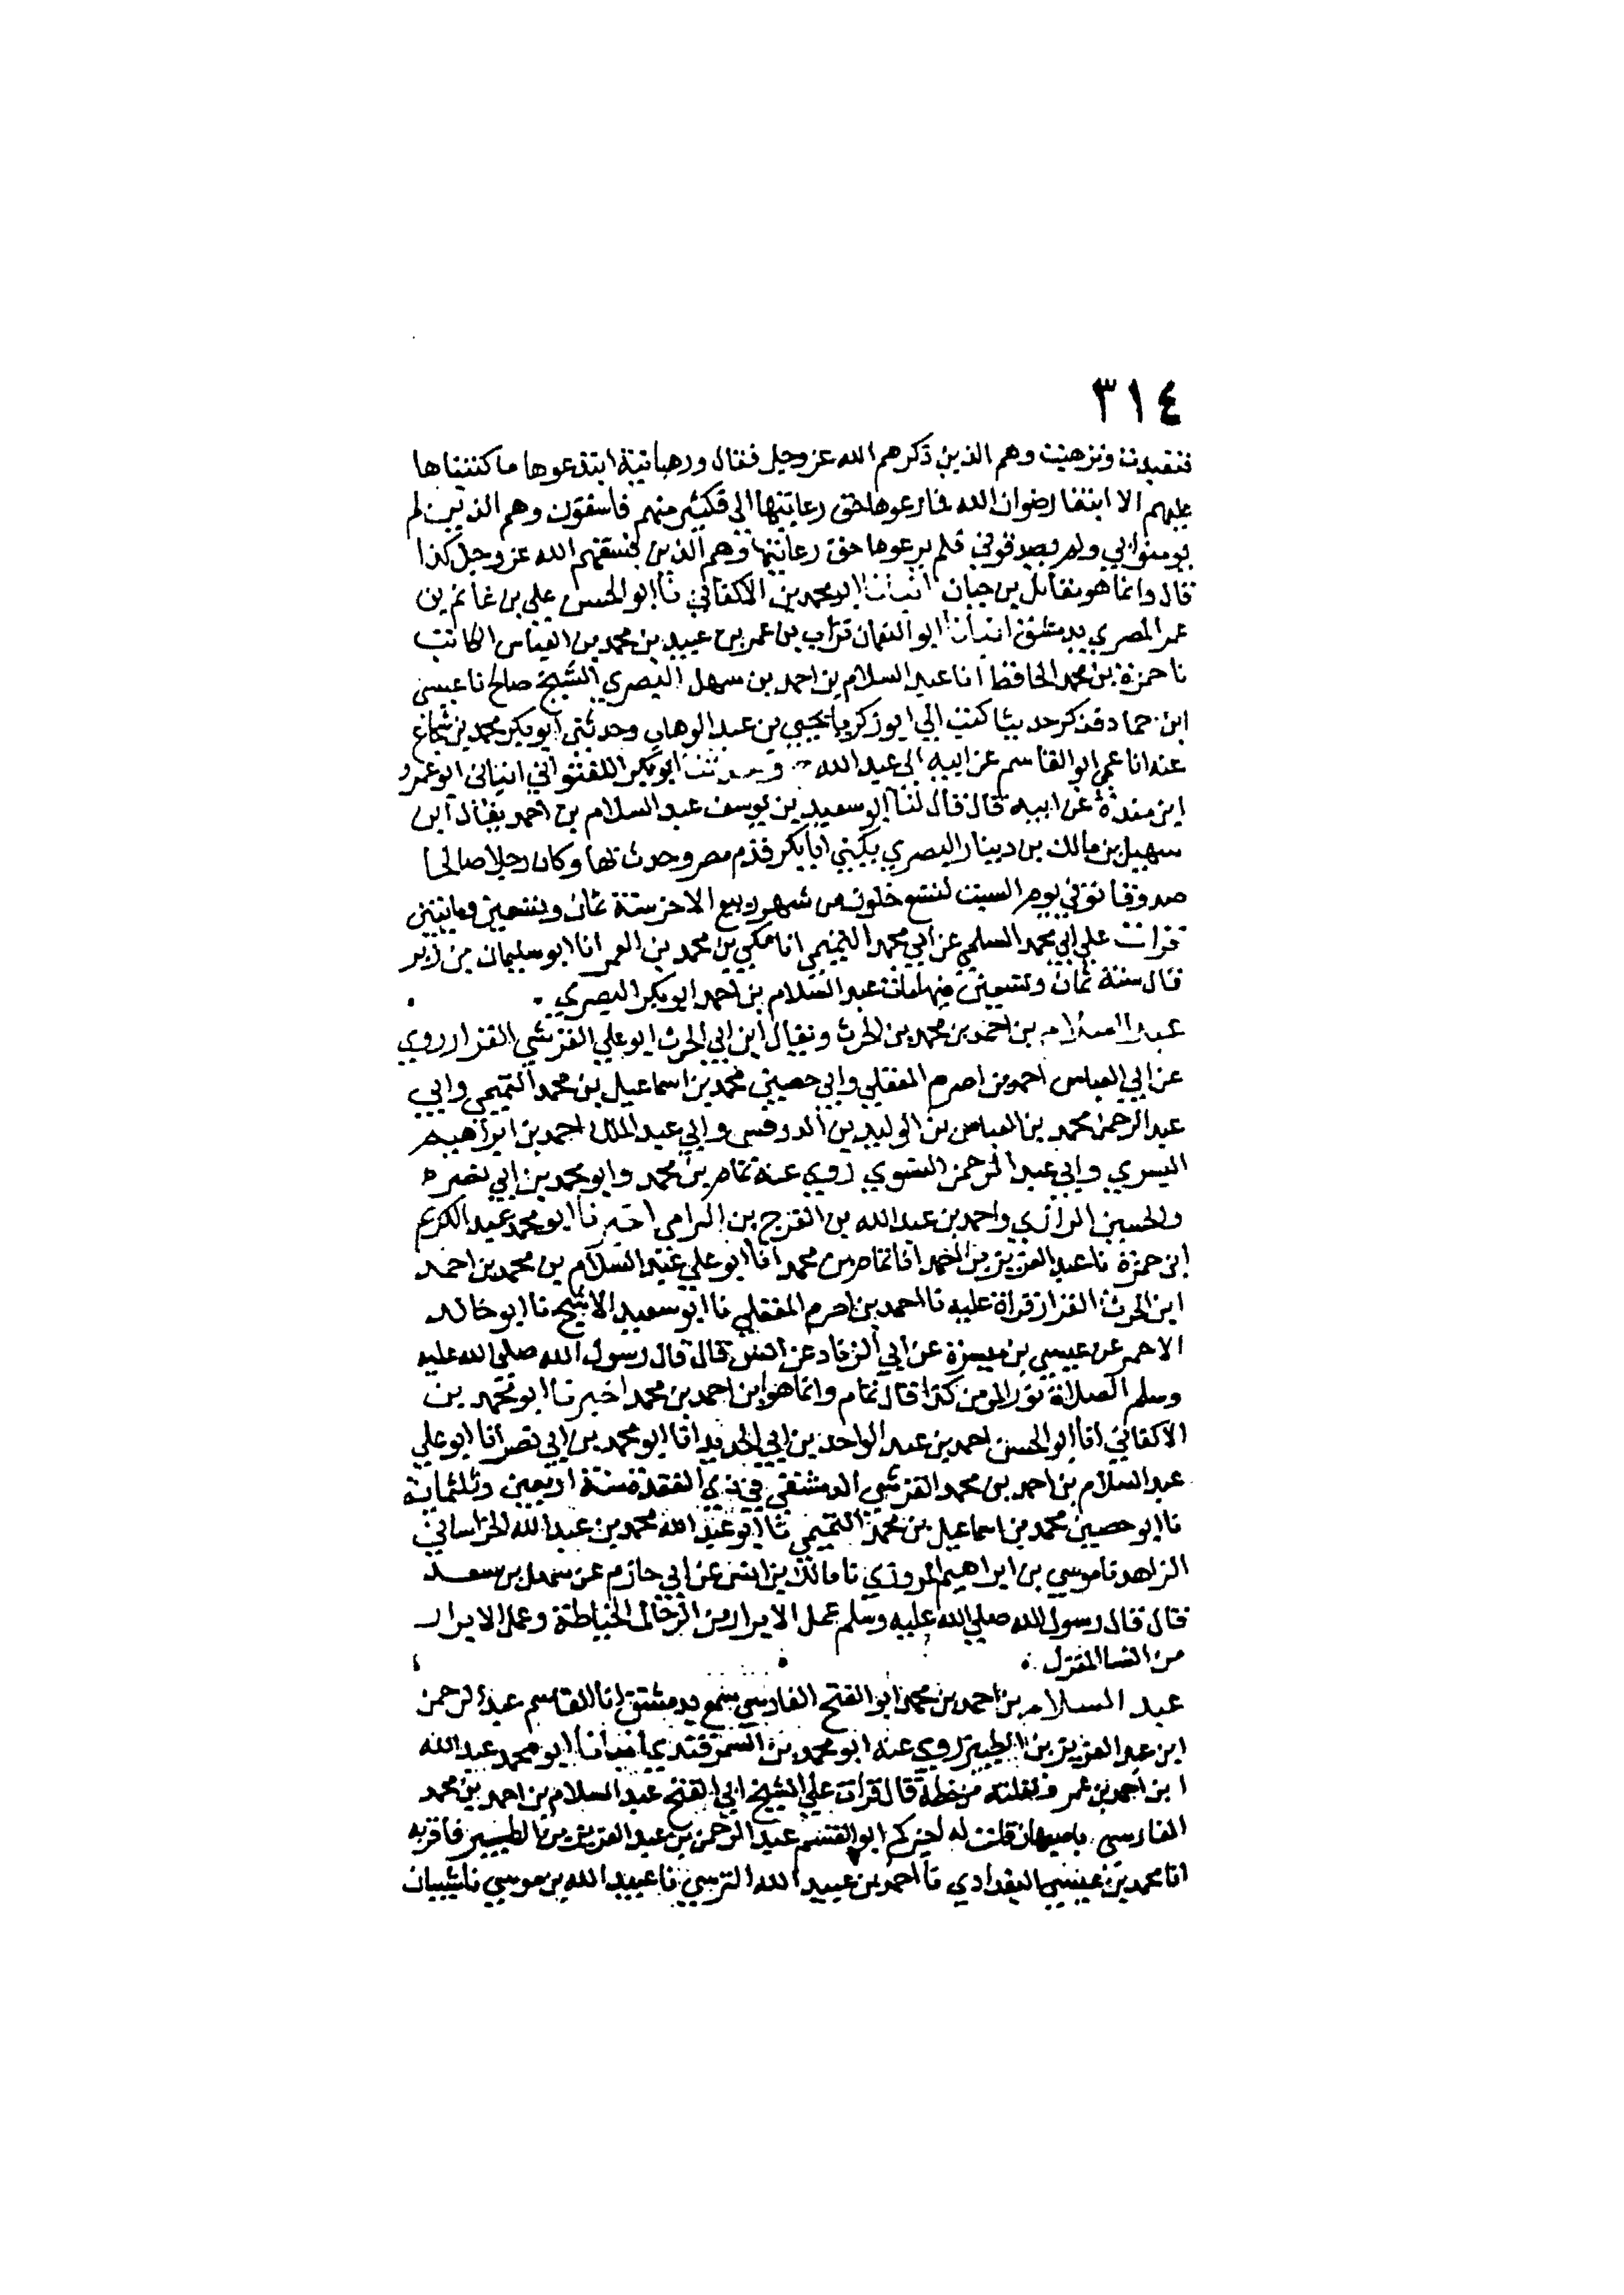 ٣١٤
فتعبدت وترهبت وهم الذين ذكرهم الله عز وجل فقال ورهبانية ابتدعوها ما كتبناها
عليهم الا ابتغا رضوان الله فما رعوها حق رعايتها الى وكثير منهم فاسقون وهم الذين لم
يومنوا بي ولم يصدقوني فلم يرعوها حق رعايتها وهم الذين فسقهم الله عز وجل كذا
قال وانما هو مقاتل بن حيان انبانا ابو محمد بن الاكفاني نا ابو الحسن علي بن غانم بن
عمر المصري بدمشق انبانا ابو النعمان تراب بن عمر بن عبيد بن محمد بن العباس الكاتب
نا حمزة بن محمد الحافظ انا عبد السلام بن احمد بن سهل البصري الشيخ صالح نا عيسى
ابن حماد فذكر حديثا كتب الي ابو زكريا يحيى بن عبد الوهاب وحدثني ابو بكر محمد بن شجاع
عنه انا عمي ابو القاسم عن ابيه ابي عبد الله ح وحدثنا ابو بكر اللفتواني انباني ابو عمرو
ابن مندة عن ابيه قال قال لنا ابو سعيد بن يوسف عبد السلام بن احمد يقال ابن
سهيل بن مالك بن دينار البصري يكنى ابا بكر قدم مصر وحدث بها وكان رجلا صالحا
صدوقا توفي يوم السبت لتسع خلون من شهر ربيع الاخر سنة ثمان وتسعين ومايتين
قرات علي ابي محمد السلمي عن ابي محمد التميمي انا مكي بن محمد بن العمر انا ابو سليمان بن زبر
قال سنة ثمان وتسعين فيها مات عبد السلام بن احمد ابو بكر البصري
عبد السلام بن احمد بن محمد بن الحرث ويقال ابن ابي الحرث ابو علي القرشي القزاز روي
عن ابي العباس احمد بن اصرم المغفلي وابي حصين محمد بن اسماعيل بن محمد التميمي وابي
عبد الرحمن محمد بن العباس بن الوليد بن الدرفس وابي عبد الملك احمد بن ابراهيم
البسري وابي عبد الرحمن النسوي روي عنه تمام بن محمد وابو محمد بن ابي نصر
والحسين الرازي واحمد بن عبد الله بن الفرج بن البرامي اخبرنا ابو محمد عبد الكريم
ابن حمزة نا عبد العزيز بن احمد انا تمام بن محمد انا ابو علي عبد السلام بن محمد بن احمد
ابن الحرث القزاز قراة عليه نا احمد بن اصرم المغفلي نا ابو سعيد الاشج نا ابو خالد
الاحمر عن عيسى بن ميسرة عن ابي الزناد عن انس قال قال رسول الله صلي الله عليه
وسلم الصلاة نور المومن كذا قال تمام وانما هو ابن احمد بن محمد اخبرنا ابو محمد بن
الاكفاني انا ابو الحسن احمد بن عبد الواحد بن ابي الحديد انا ابو محمد بن ابي نصر انا ابو علي
عبد السلام بن احمد بن محمد القرشي الدمشقي في ذي القعدة سنة اربعين وثلثماية
نا ابو حصين محمد بن اسماعيل بن محمد التميمي نا ابو عبد الله محمد بن عبد الله الخراساني
الزاهد نا موسي بن ابراهيم المروزي نا مالك بن انس عن ابي حازم عن سهل بن سعد
قال قال رسول الله صلي الله عليه وسلم عمل الابرار من الرجال الخياطة وعمل الابرار
من النسا المغزل
عبد السلام بن احمد بن محمد ابو الفتح الفارسي سمع بدمشق ابا القاسم عبد الرحمن
ابن عبد العزيز بن الطبيز روي عنه ابو محمد بن السمرقندي انبانا ابو محمد عبد الله
ابن احمد بن عمر ونقلته من خطه قال قرات علي الشيخ ابي الفتح عبد السلام بن احمد بن محمد
الفارسي باصبهان قلت له اخبركم ابو القسم عبد الرحمن بن عبد العزيز بن الطبيز فاقر به
انا محمد بن عيسى البغدادي نا احمد بن عبيد الله النرسي نا عبيد الله بن موسي نا شيبان